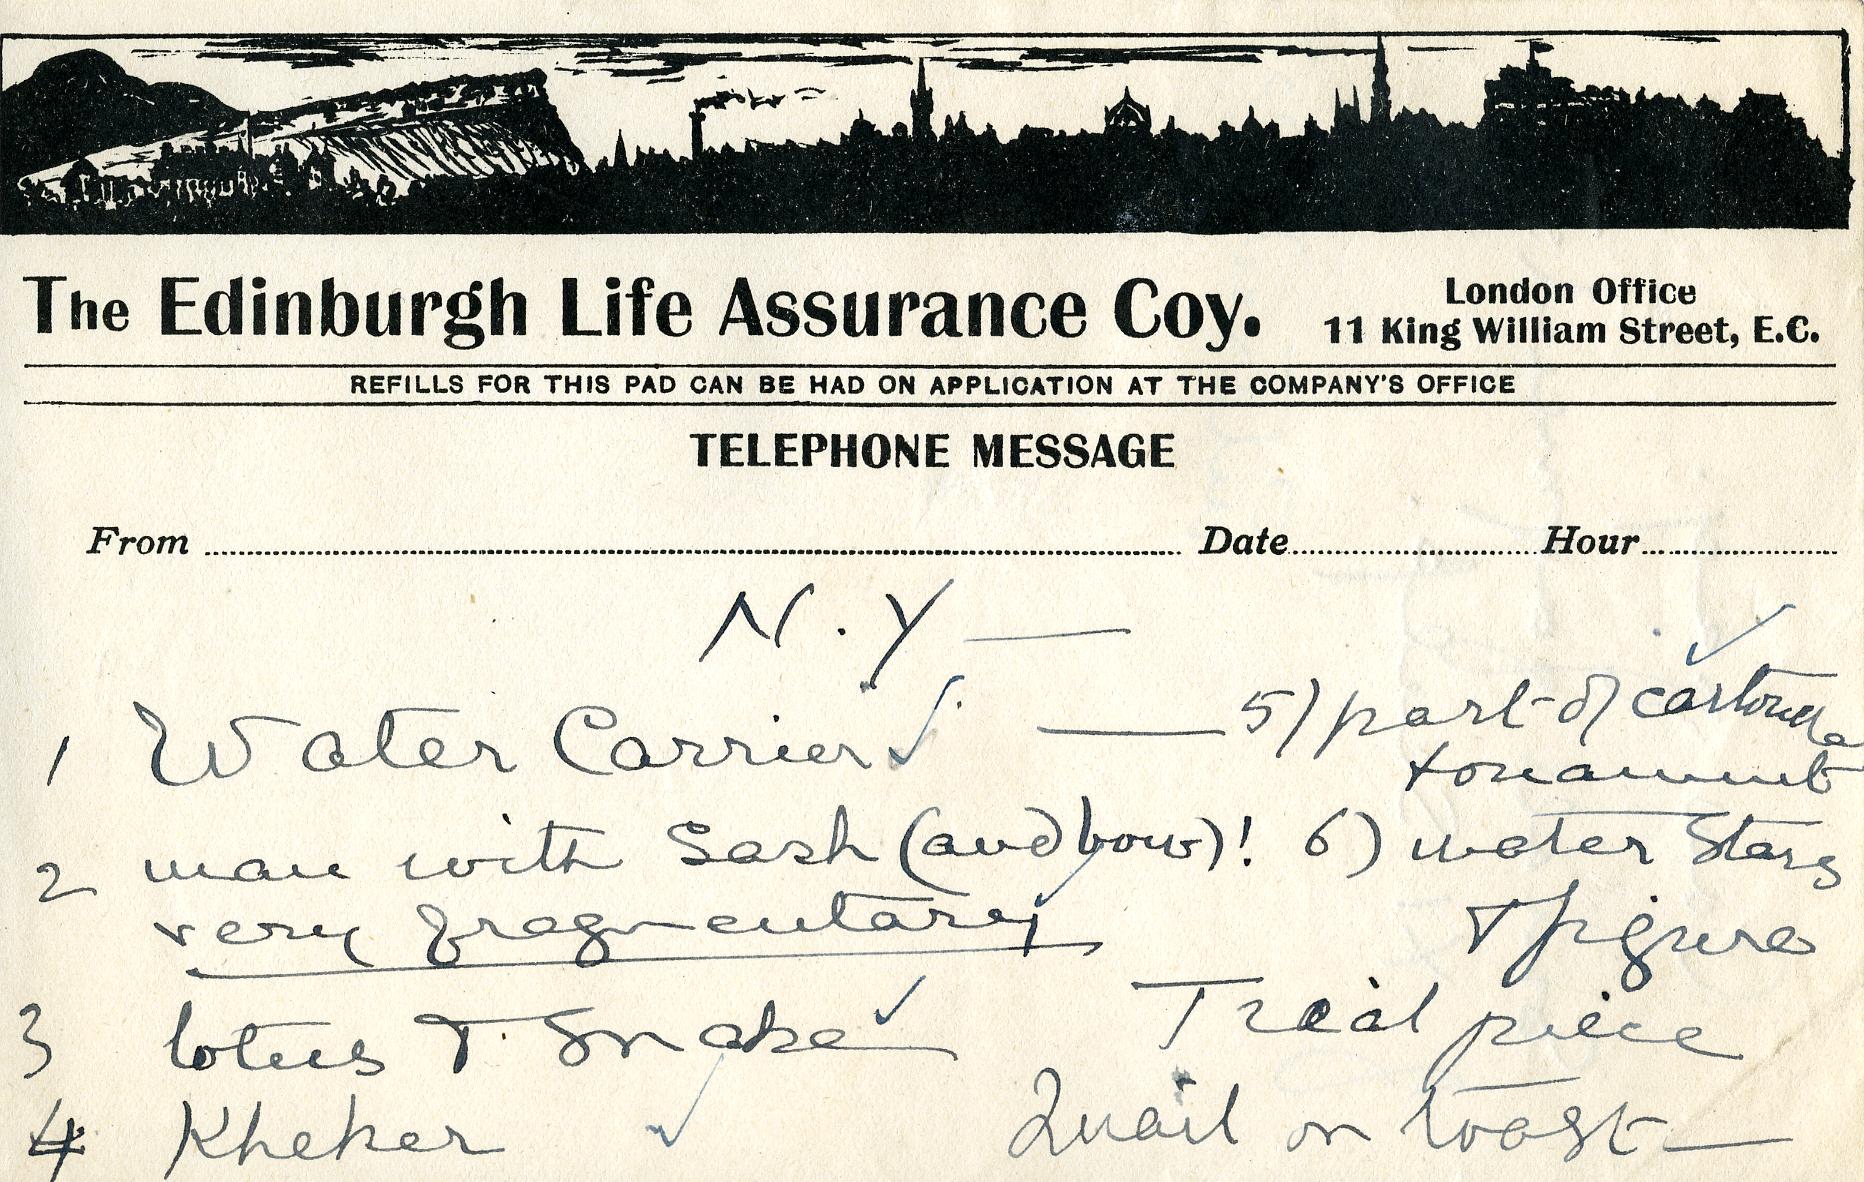 The Edinburgh Life Assurance Coy.
London Office
11 King William Street, E.C.
REFILLS FOR THIS PAD CAN BE HAD ON APPLICATION AT THE COMPANY'S OFFICE
TELEPHONE MESSAGE
From Date Hour
N.Y —
1 Water Carrier
2 man with Sash (and bow)!
very fragmentary
3 lotus & Snake
4 Kheker
5) part of cartouche
& ornament
6) water Stars
& figure
Trial piece
Quail on toast —